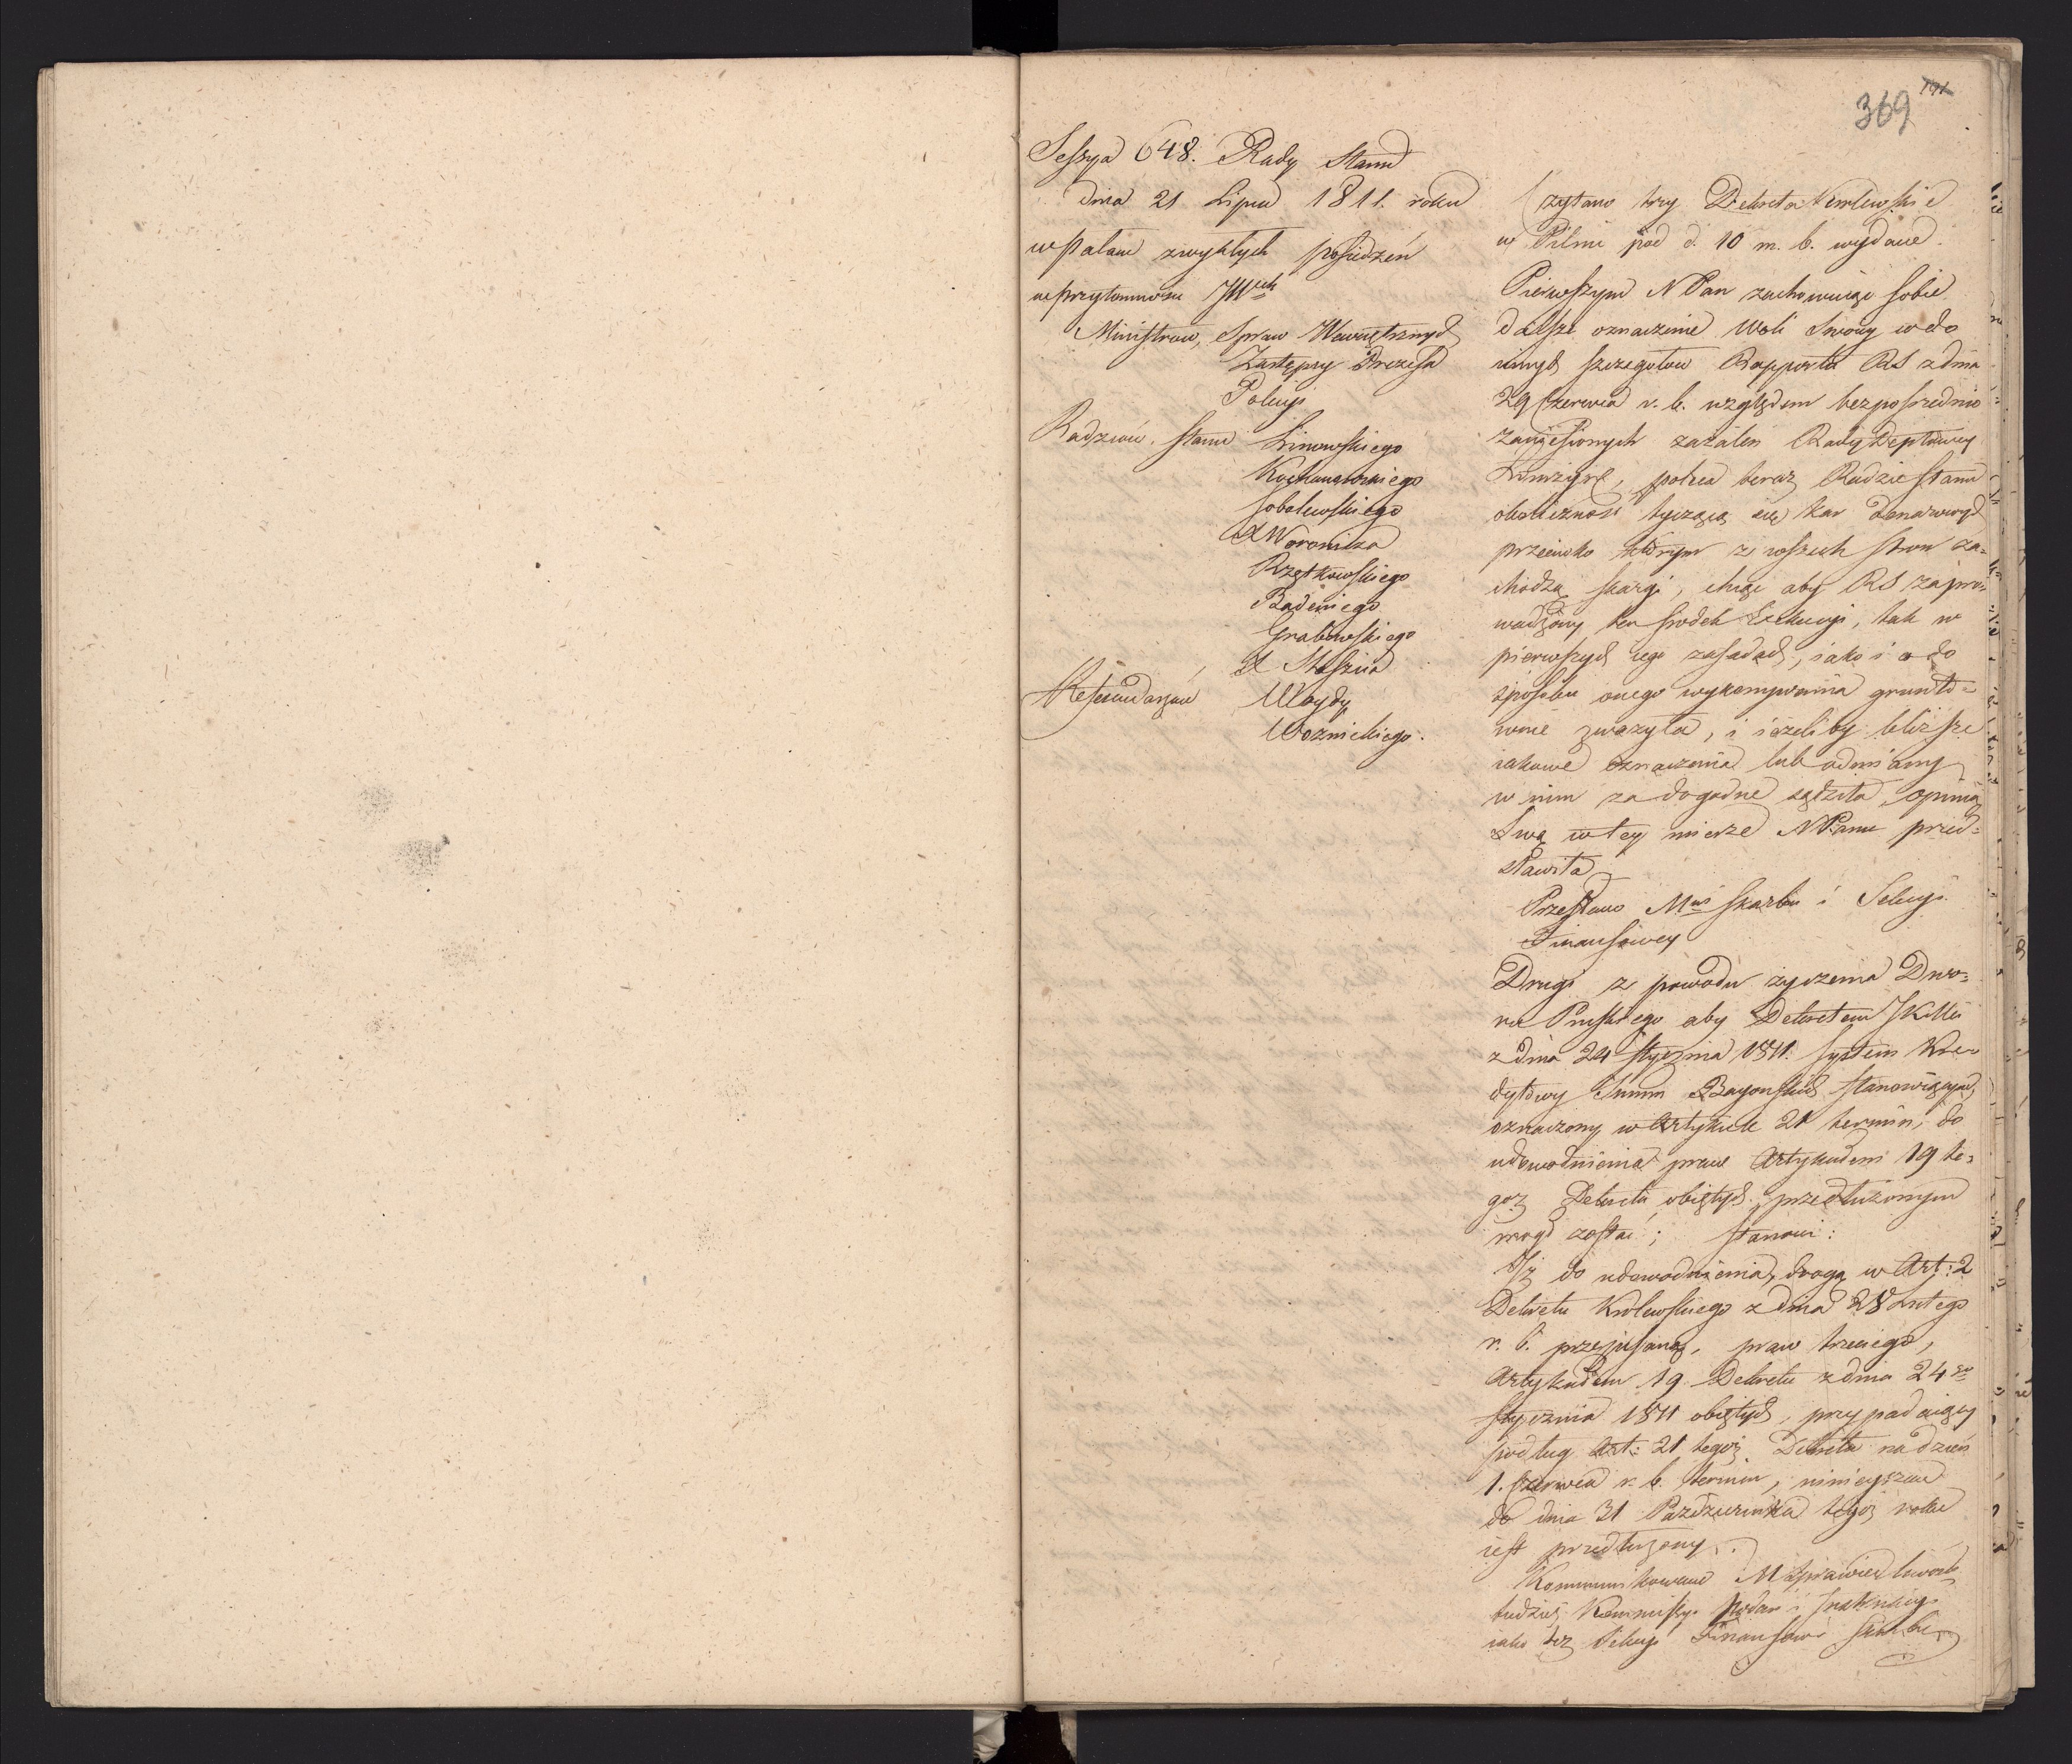 369
Sessya 648. Rady Stanu
dnia 21 Lipca 1811. roku
w Pałacu zwykłych posiedzeń
w przytomności JW<sup>ch</sup>
Ministrów, Spraw Wewnętrznych
Zastępcy Prezesa
Policyi
Radzców Stanu Linowskiego
Kochanowskiego
Sobolewskiego
X Woronicza
Rzętkowskiego
Badeniego
Grabowskiego
X Staszica
Referendarzów Woydy
Woznickiego.
Czytano trzy Dekreta Królewskie
w Pilnic pod d. 10 m. b. wydane.
Pierwszym N Pan zachowuiąc sobie
dalsze oznaczenie Woli Swoiey w do
innych szczegołów Rapportu RS z dnia
29 Czerwca r. b. względem bezpośrednio
zaniesionych zażaleń Rady Deptowey
Łomżyń, poleca teraz Radzie Stanu
okoliczność tyczącą się kar
przeciwko którym z wszech stron za-
chodzą skargi, chcąc aby RS zapro-
wadzony ten środek Exekucyi, tak w
pierwszych iego zasadach, iako i co do
sposobu onego wykonywania grunto-
wnie zważyła, i ieżeliby bliższe
iakowe oznaczenia lub odmiany
w nim za dogodne sądziła, opinią
Swą w tey mierze N Panu przed-
stawiła
Przesłano M<sup>wi</sup> Skarbu i Sekcyi
Finansowey
Drugi z powodu życzenia Dwo-
ru Pruskiego aby Dekretem JKMci
z dnia 24 Stycznia 1811. System Kre-
dytowy Summ Bayońskich stanowiącym,
oznaczony w Artykule 21 termin, do
udowodnienia praw Artykułem 19 te-
goż Dekretu obiętych, przedłużonym
mógł zostać; stanowi:
Iż do udowodnienia, drogą w Art: 2
Dekretu Królewskiego z dnia 28 Lutego
r. b. przepisaną, praw trzeciego,
Artykułem 19 Dekretu z dnia 24<sup>go</sup>
Stycznia 1811 obiętych, przypadaiący
podług Art: 21 tegoż Dekretu na dzień
1. Czerwca r. b. termin, ninieyszem
do dnia 31 Pazdziernika tegoż roku
iest przedłużony.
Kommunikowane M Sprawiedliwości
tudzież Kommissyi Podań i Instrukcyi
iako też Sekcyi Finansów i Skarbu